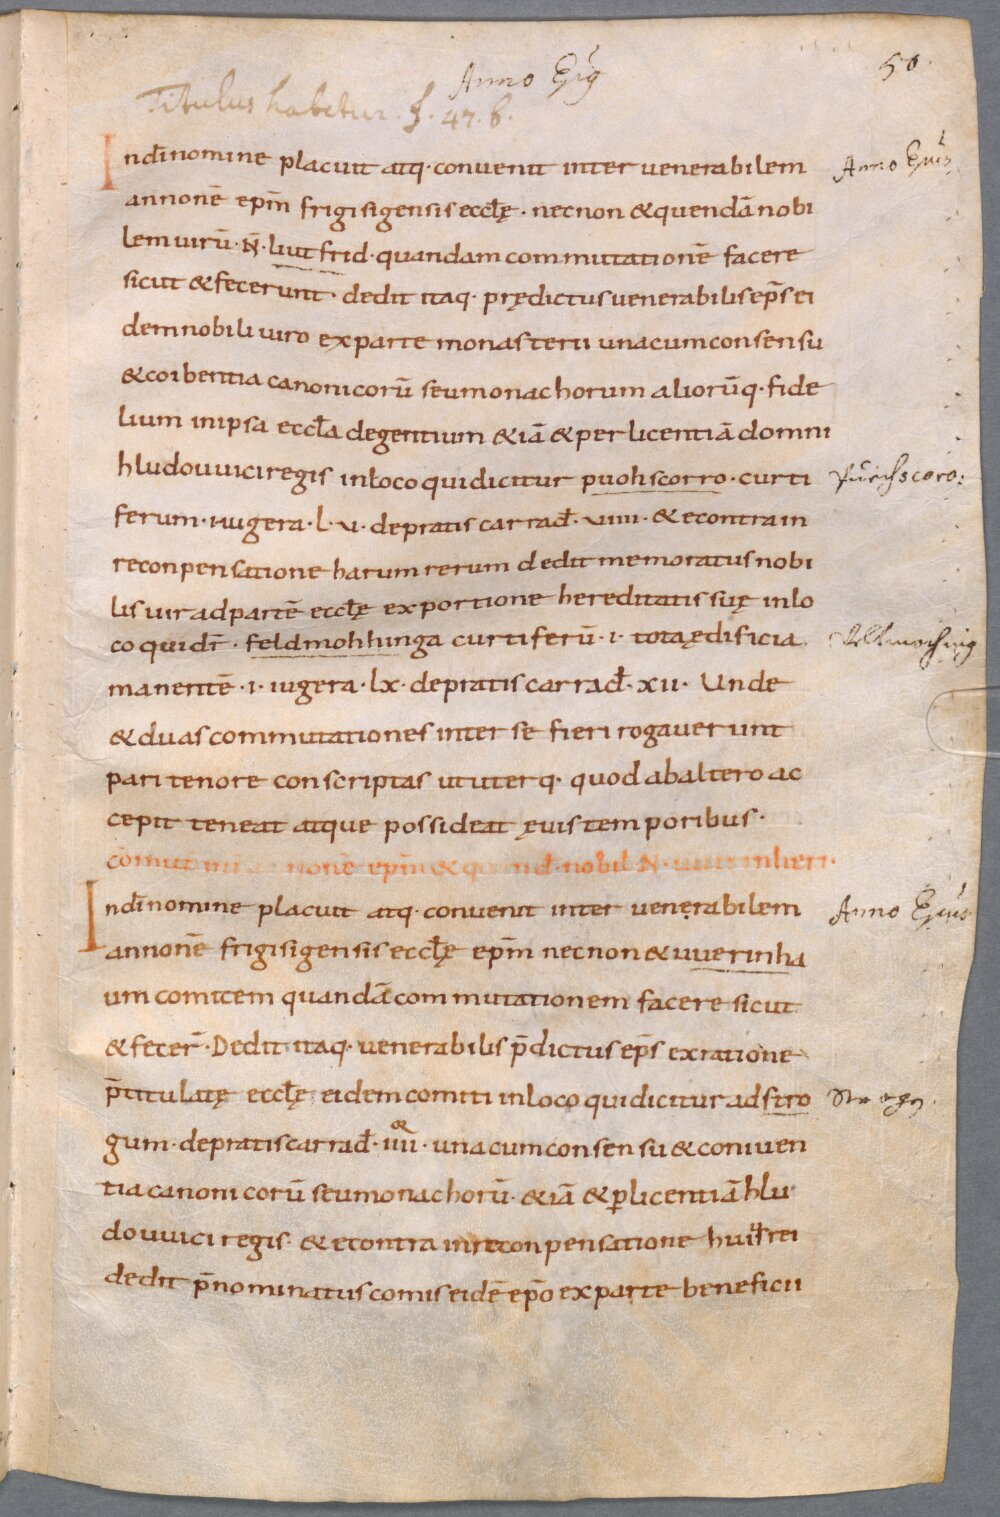 Anno Epīg
50.
Titulus habetur. f. 47. b.
Indīnomine placuit atq· convenit inter venerabilem
Anno Epīs
annonē epīm frigisigensis ecclę· necnon & quendā nobi
lem uirū· N̄· liutfrid· quandam commutationē facere
sicut & fecerunt· dedit itaq· prędictus venerabilis ep̄s ei
dem nobili viro ex parte monasterii una cum consensu
& coibentia canonicorū seu monachorum aliorūq· fide
lium in ipsa eccl̄a degentium & iā & per licentiā domni
hludouuici regis in loco qui dicitur puohscorro· curti
ferum· i· iugera· l· v· de pratis carrad̄· viiii· & econtra in
reconpensatione harum rerum dedit memoratus nobi
lis vir ad partē ecclę ex portione hereditatis suę in lo
co qui dr̄· feldmohhinga curtiferū· i· totaędificia
manentē· i· iugera· lx· de pratis carrad̄· xii· Unde
& duas commutationes inter se fieri rogaverunt
pari tenore conscriptas ut uterq· quod ab altero ac
cepit teneat atque possideat ęvis temporibus·
nonē epīm & nobil N̄
Indīnomine placuit atq· convenit inter venerabilem
Anno Epīs
annonē frigisigensis ecclę epīm necnon & uuerinha
um comitem quandā commutationem facere sicut
& fecer̄· Dedit itaq· venerabilis p̄dictus ep̄s ex ratione
p̄titulatę ecclę eidem comiti in loco qui dicitur ad stro
gum· de pratis carrad̄· iiii· una cum consensu & coniven
tia canonicorū seu monachorū· & iā & p̱ licentiā hlu
douuici regis· & econtra in reconpensatione huius rei
dedit p̄nominatus comis eidē ep̄o ex parte beneficii